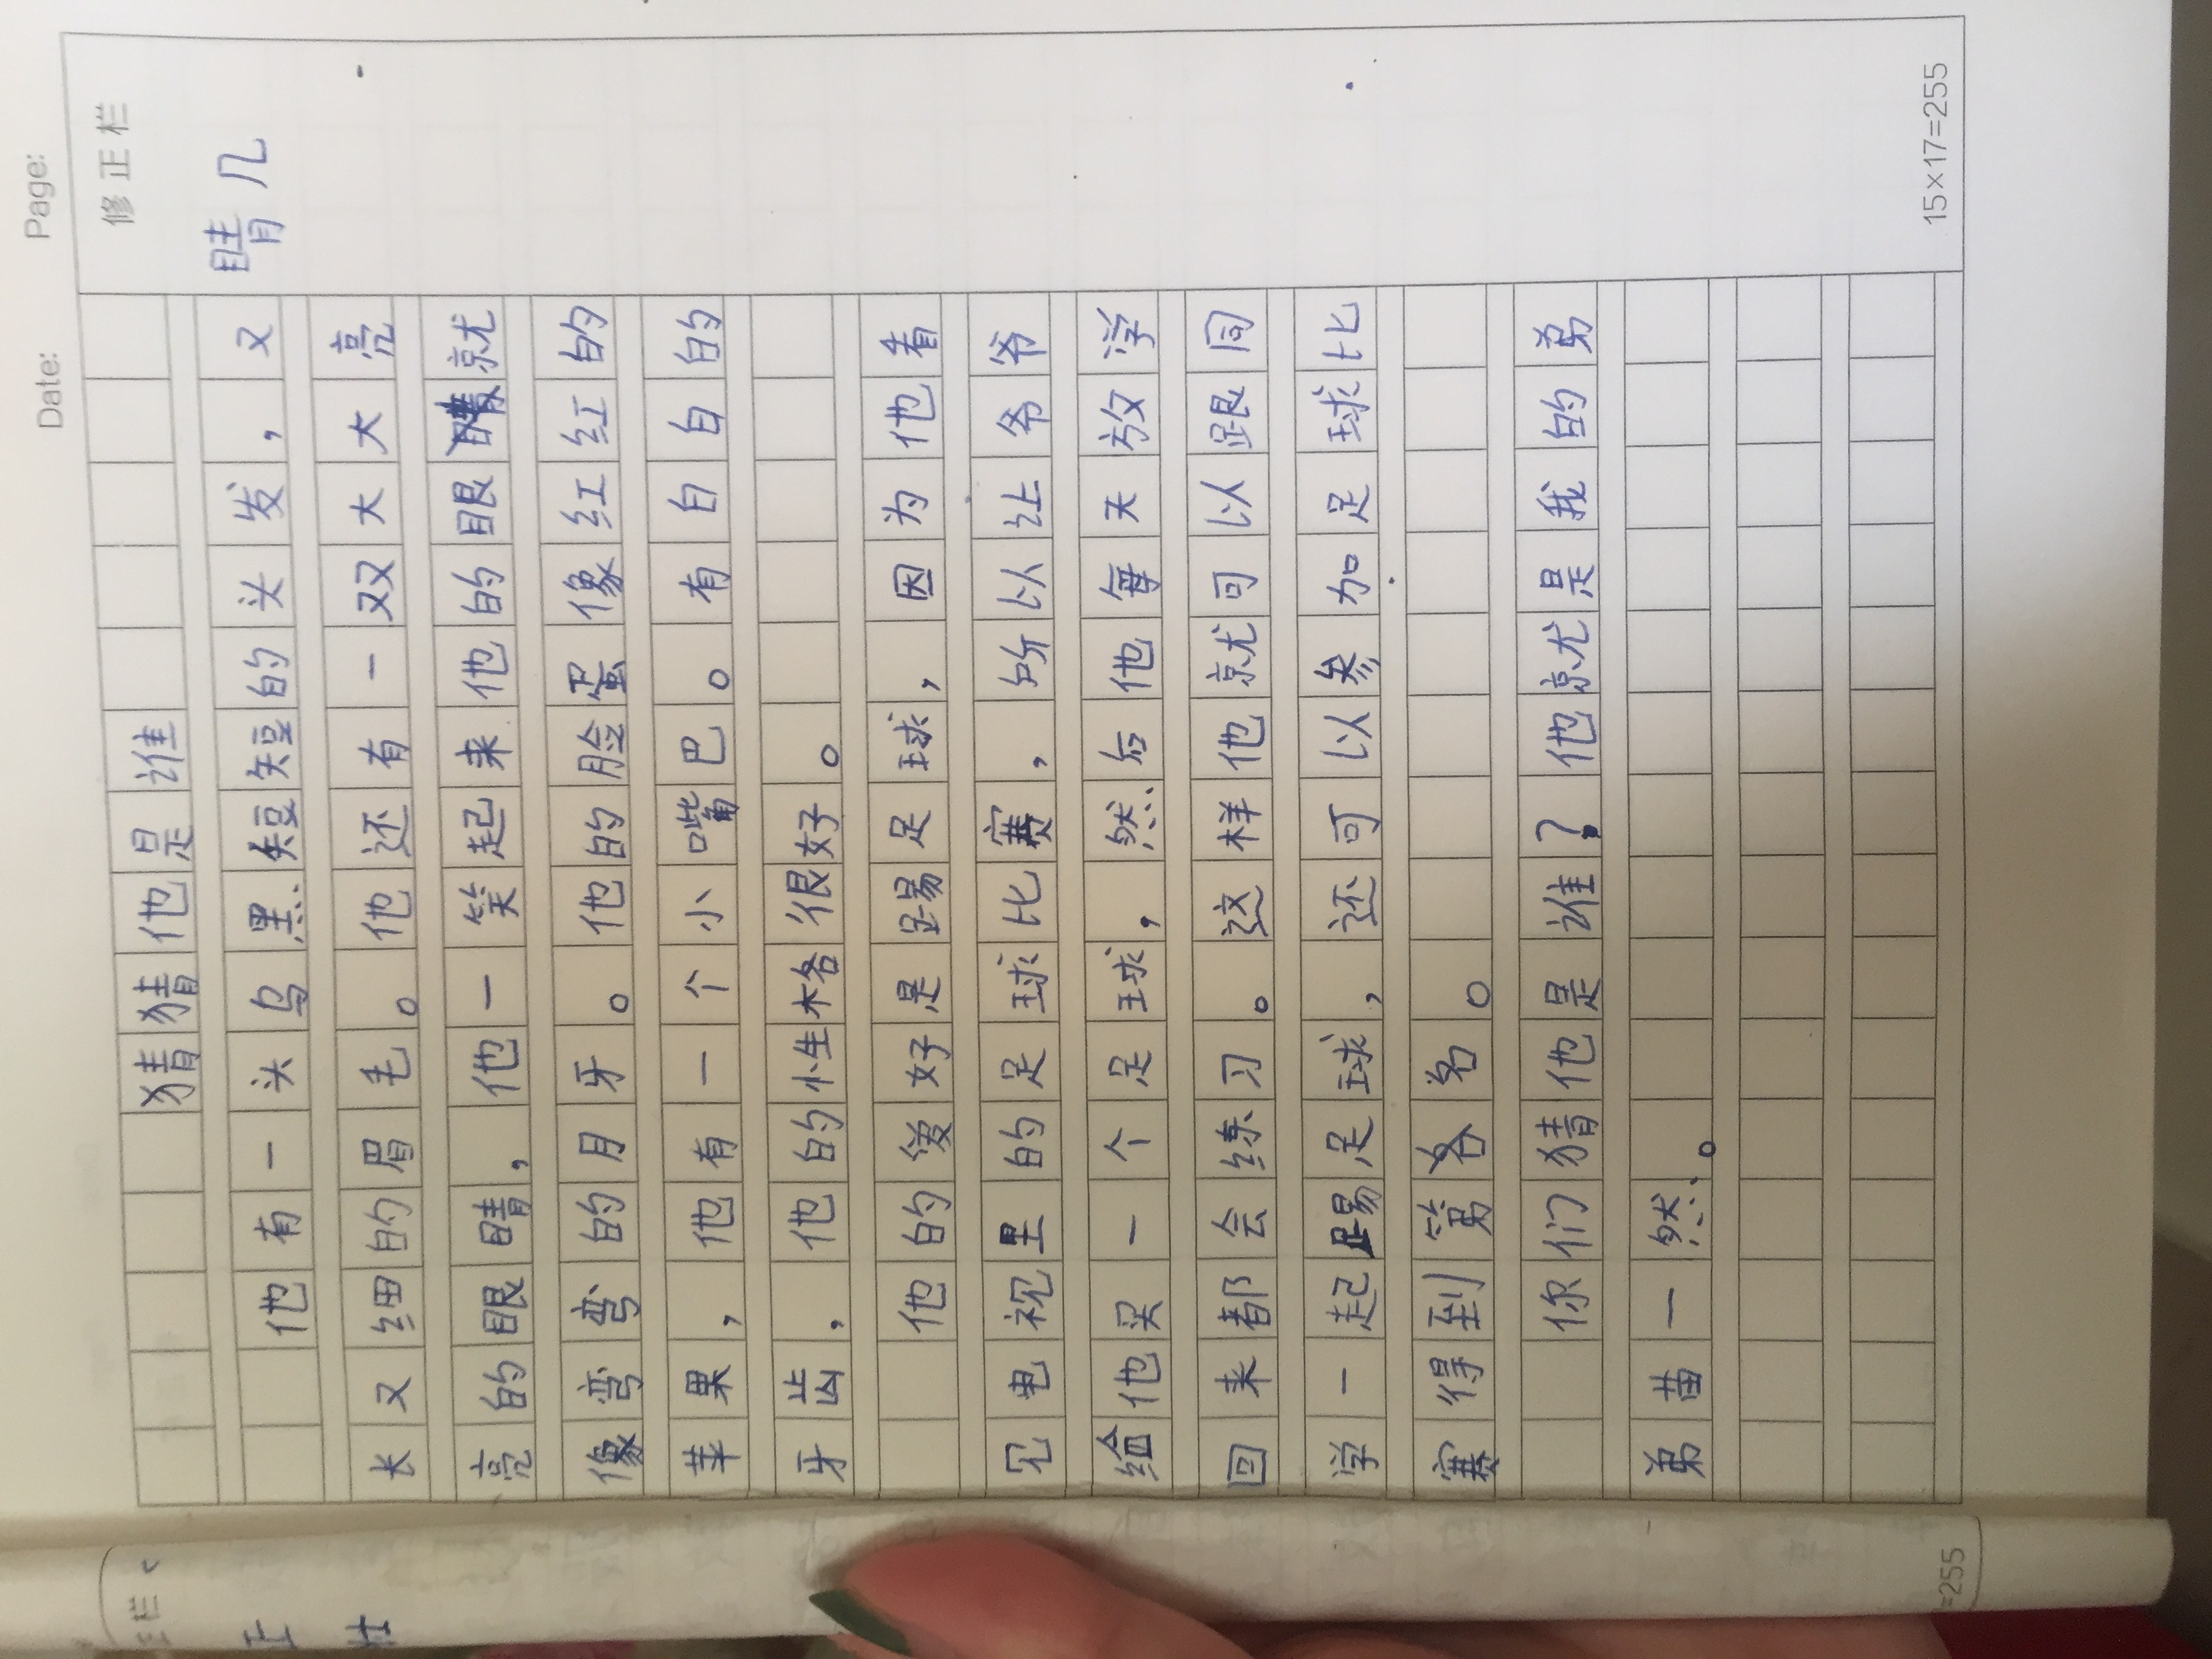 Date: Page:
修正栏
猜猜他是谁
他有一头乌黑短短的头发,又
睛几
长又细的眉毛。他还有一双大大亮
亮的眼睛,他一笑起来他的眼睛就
像弯弯的月牙。他的脸蛋像红红的
苹果,他有一个小嘴巴。有白白的
牙齿,他的性格很好。
他的爱好是踢足球,因为他看
见电视里的足球比赛,所以让爷爷
给他买一个足球,然后他每天放学
回来都会练习。这样他就可以跟同
学一起踢足球,还可以参加足球比
赛得到第名。
你们猜他是谁?他就是我的弟
弟苗一然。
15×17=255
=255